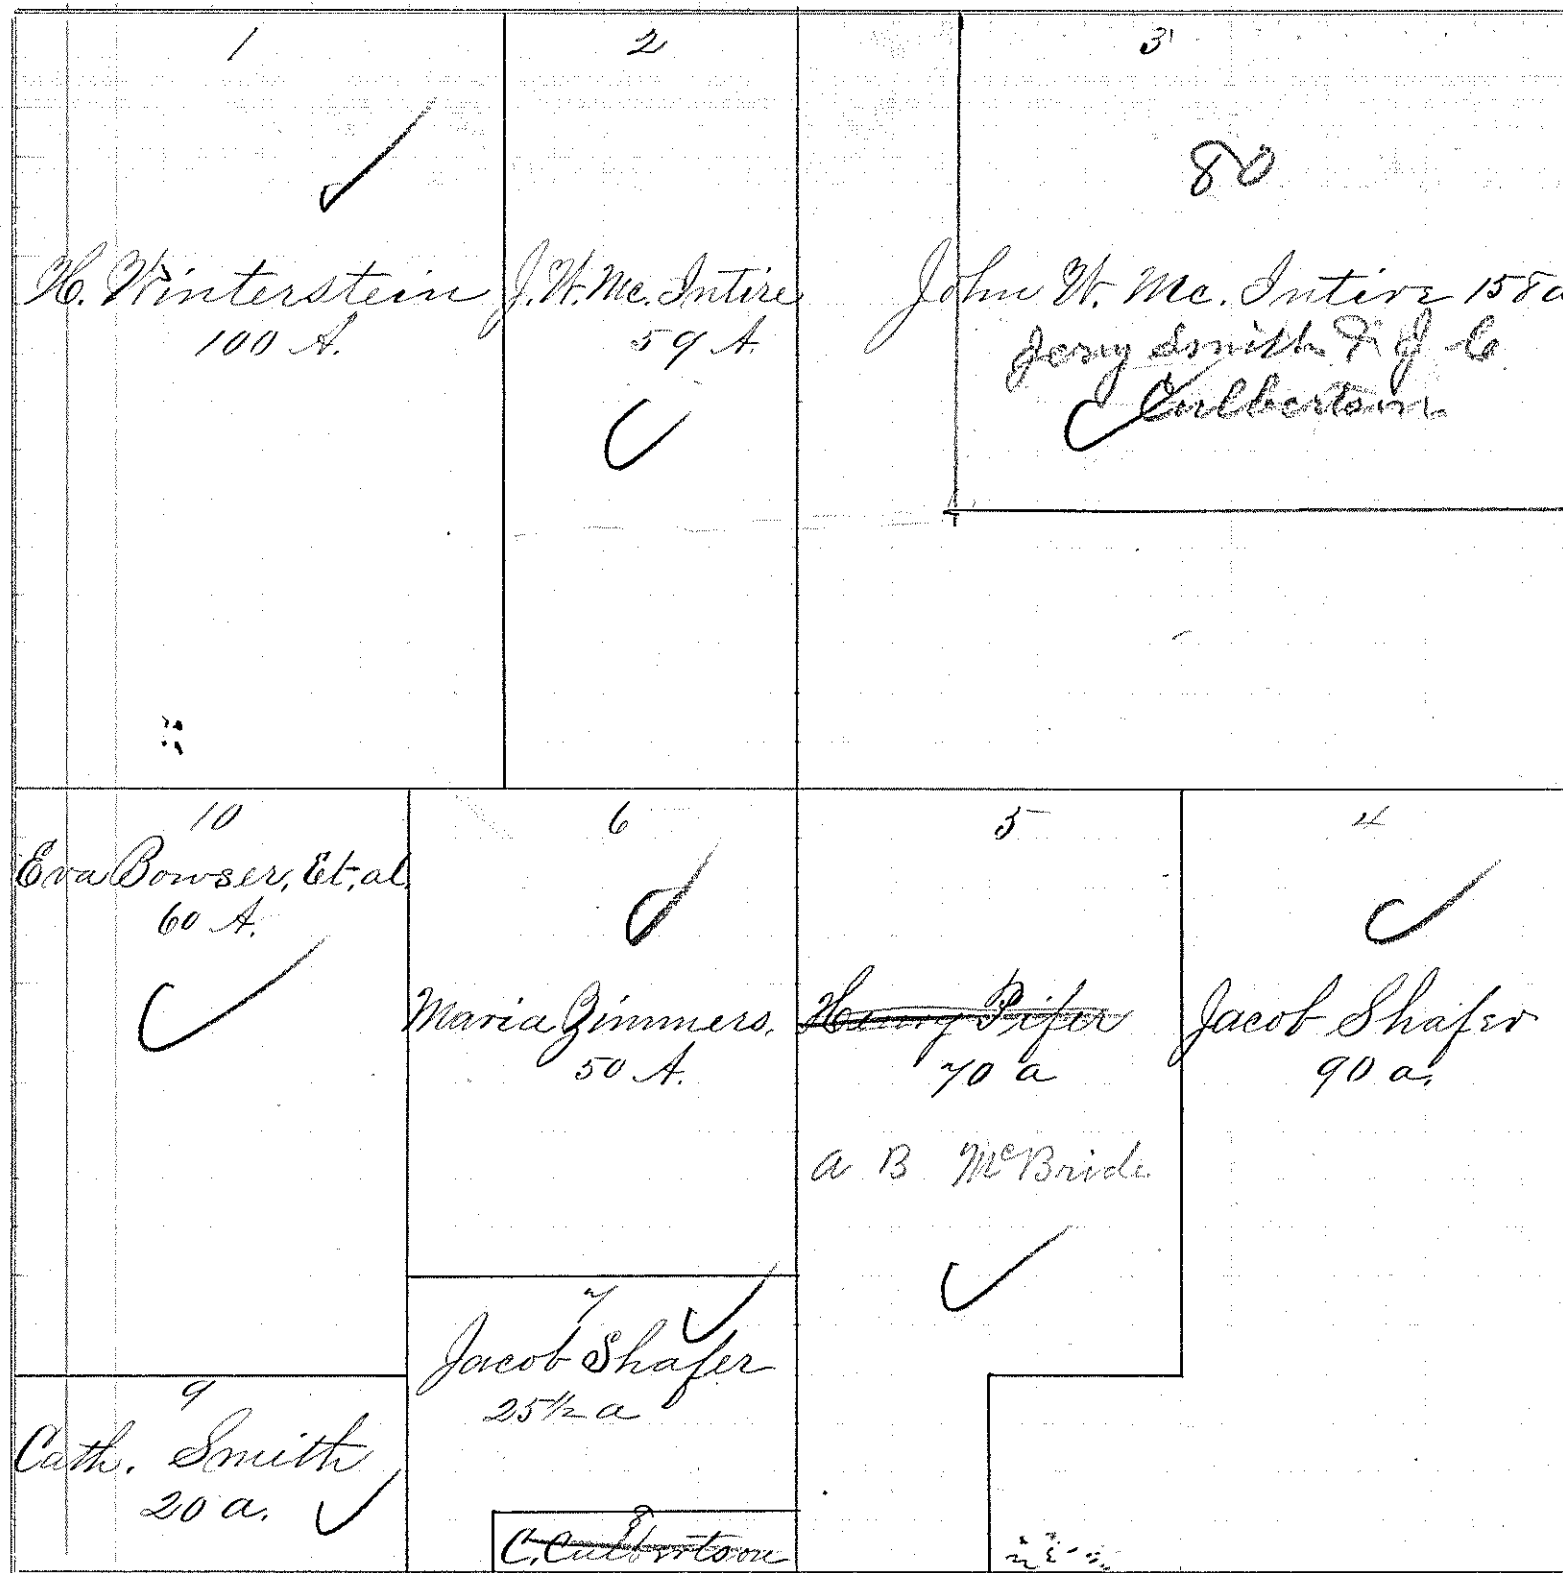 1
H. Winterstein
100 A.
2
J. W. Mc. Intire
59 A.
3
80
John W. Mc. Intire 158a
Jerry Smith & J C
Culbertson
10
Eva Bowser, Et, al,
60 A.
6
Maria Zimmers.
50 A.
5
Henry Pifer
70 a
A B McBride
4
Jacob Shafer
90 a.
7
Jacob Shafer
25 1/2 a
9
Cath. Smith
20 a.
8
C. Culbertson